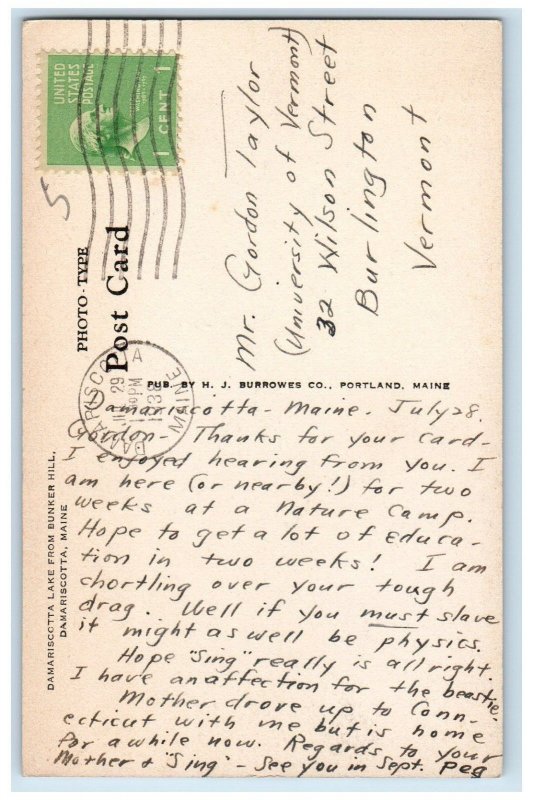 UNITED
STATES
POSTAGE
1 CENT 1
5
PHOTO-TYPE
Post Card
DAMARISCOTTA
29
PM
1938
MAINE
Mr. Gordon Taylor
(University of Vermont)
32 Wilson Street
Burlington
Vermont
PUB. BY H. J. BURROWES CO., PORTLAND, MAINE
DAMARISCOTTA LAKE FROM BUNKER HILL,
DAMARISCOTTA, MAINE
Damariscotta - Maine. July 28.
Gordon - Thanks for your card -
I enjoyed hearing from you. I
am here (or nearby!) for two
weeks at a Nature Camp.
Hope to get a lot of educa-
tion in two weeks! I am
chortling over your tough
drag. Well if you must slave
it might as well be physics.
Hope "Sing" really is all right.
I have an affection for the beastie.
Mother drove up to Conn-
ecticut with me but is home
for awhile now. Regards to your
Mother + "Sing" - See you in Sept. Peg